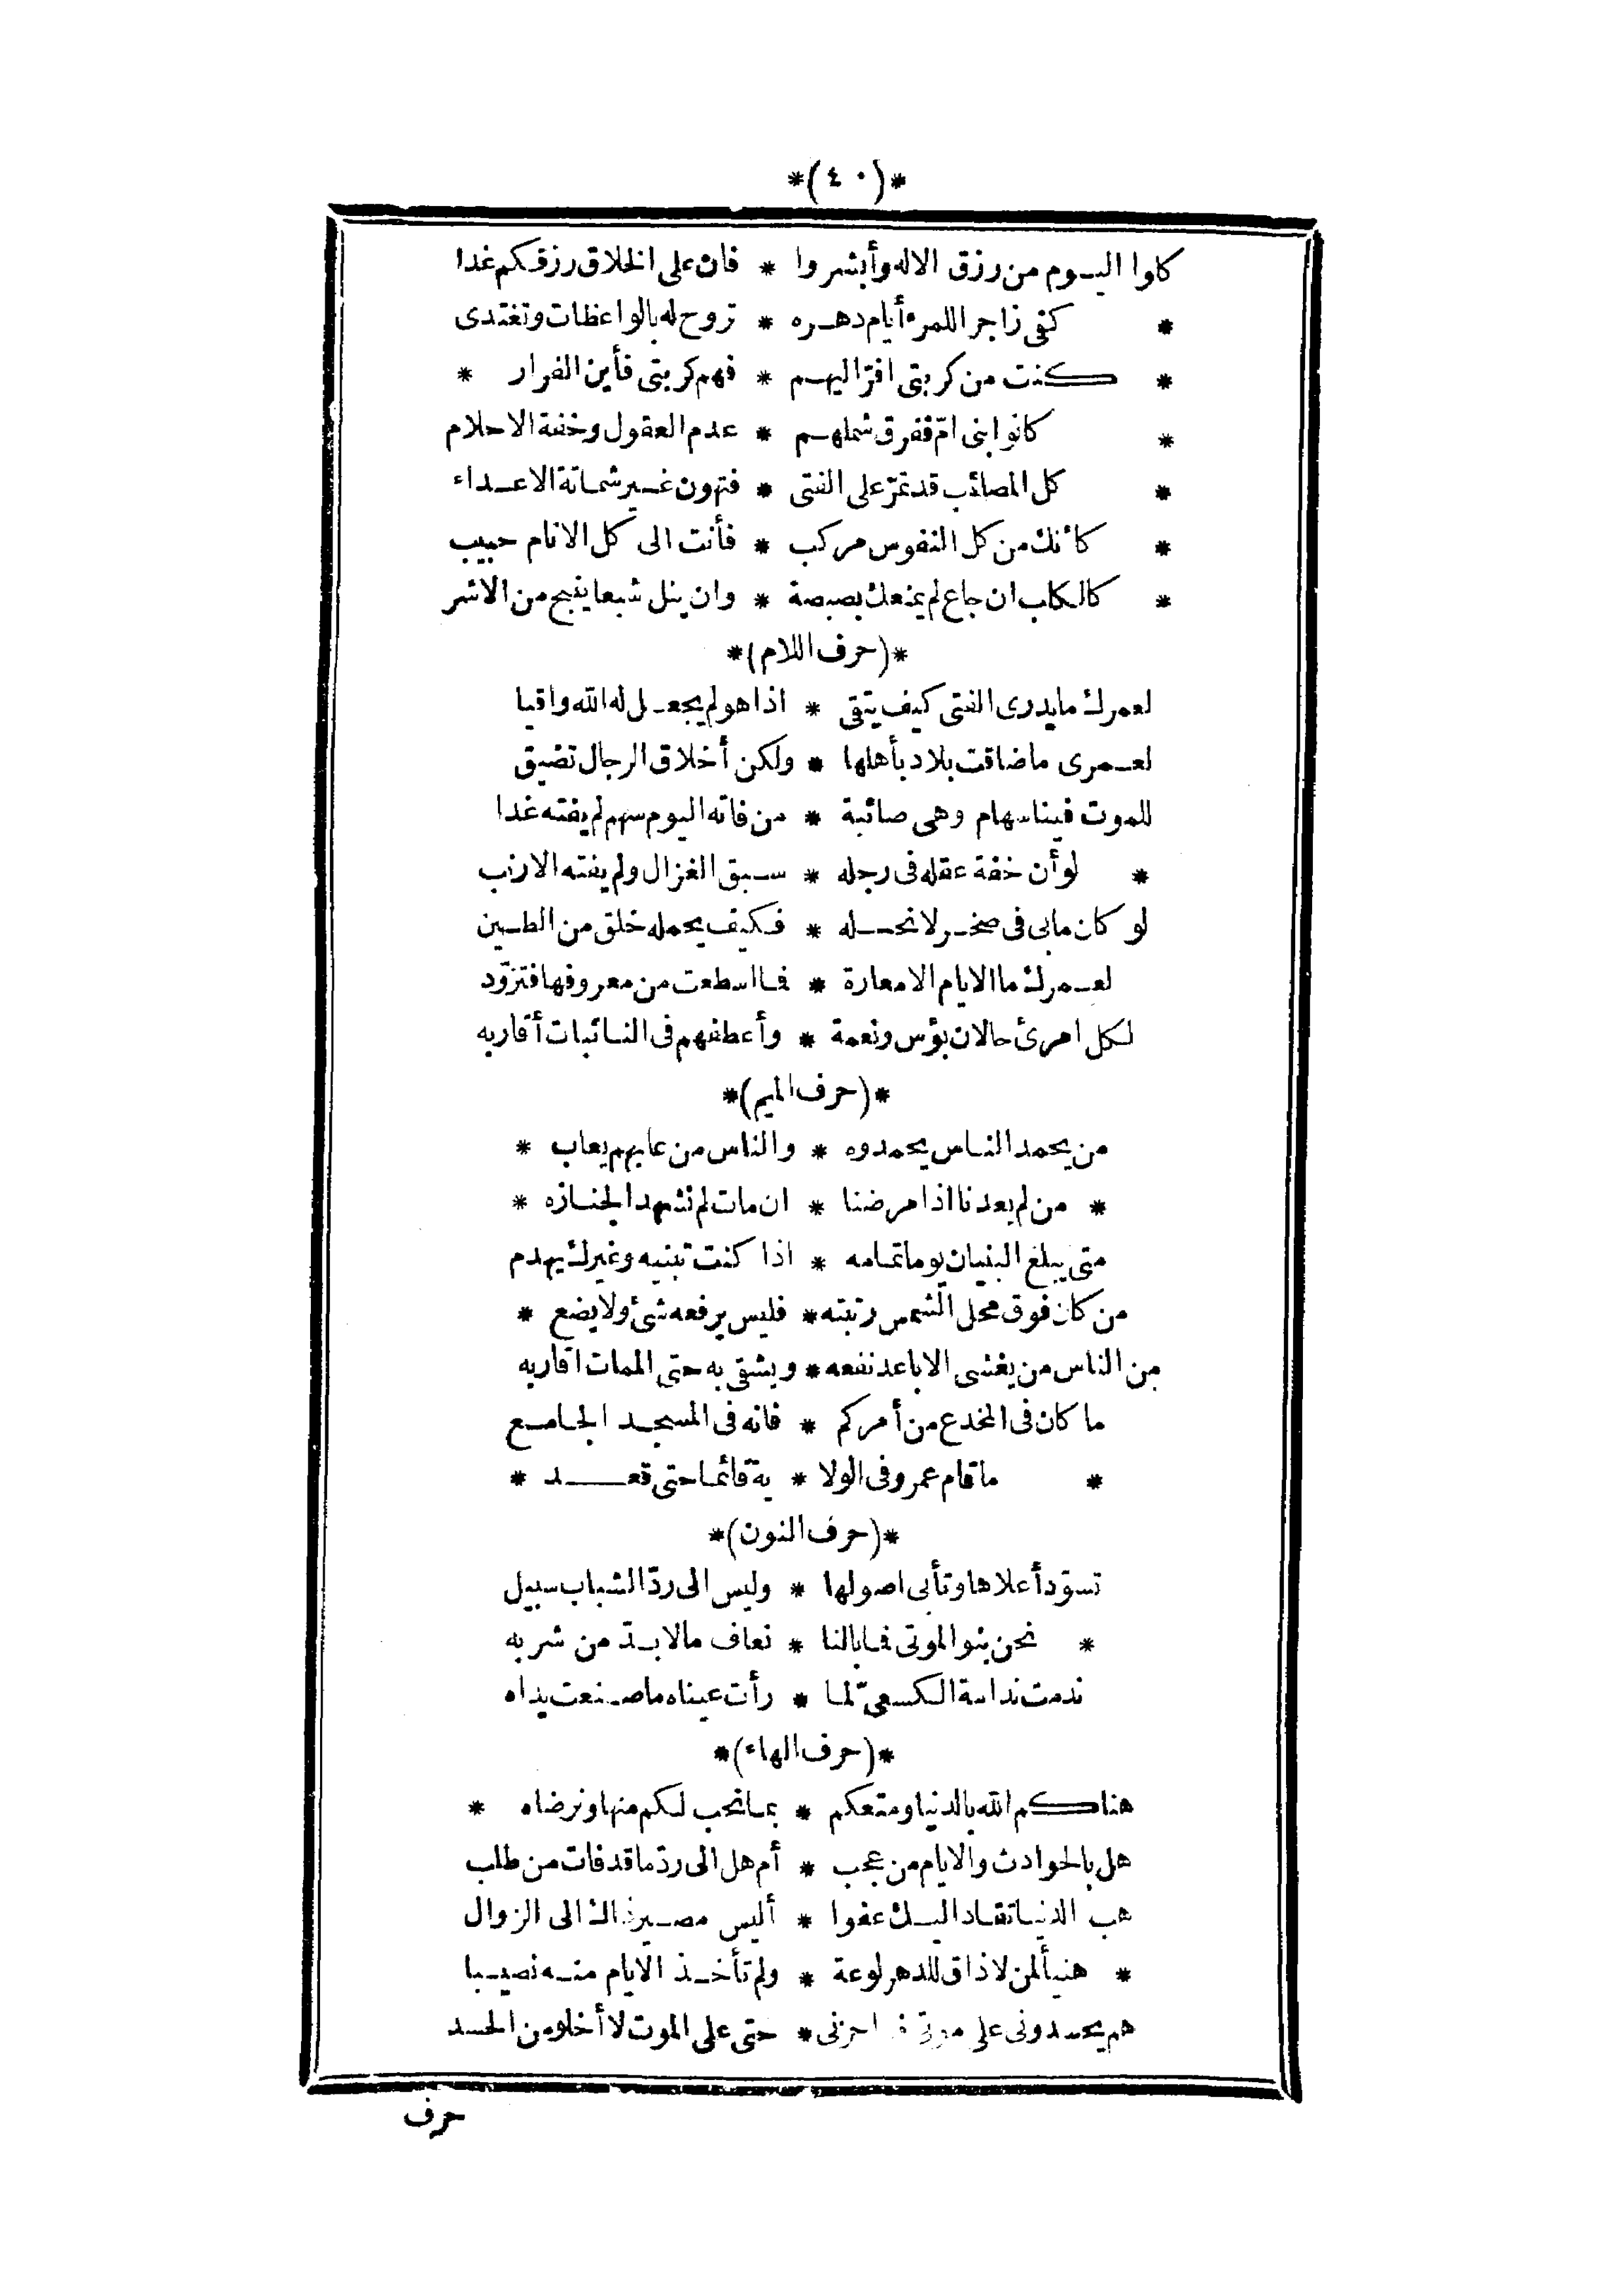 *(٤٠)*
كلوا اليوم من رزق الاله وأبشروا * فان على الخلاق رزقكم غدا
* كفى زاجرا للمرء أيام دهره * تروح له بالواعظات وتغتدى
* كنت من كربتى افرّ اليهم * فهم كربتى فأين الفرار *
* كانوا بنى امّ ففرق شملهم * عدم العقول وخفة الاحلام
* كل المصائب قد تمرّ على الفتى * فتهون غير شماتة الاعداء
* كأنك من كل النفوس مركب * فأنت الى كل الانام حبيب
* كالكلب ان جاع لم يمنعك بصبصة * وان ينل شبعا ينبح من الاشر
*(حرف اللام)*
لعمرك ما يدرى الفتى كيف يتقى * اذا هو لم يجعل له الله واقيا
لعمرى ما ضاقت بلاد بأهلها * ولكن أخلاق الرجال تضيق
للموت فينا سهام وهى صائبة * من فاته اليوم سهم لم يفته غدا
* لو أن خفة عقله فى رجله * سبق الغزال ولم يفته الارنب
لو كان مابى فى صخر لانحله * فكيف يحمله خلق من الطين
لعمرك ما الايام الا معارة * فما اسطعت من معروفها فتزوّد
لكل امرئ حالان بؤس ونعمة * وأعطفهم فى النائبات أقاربه
*(حرف الميم)*
من يحمد الناس يحمدوه * والناس من عابهم يعاب *
* من لم يعدنا اذا مرضنا * ان مات لم نشهد الجنازه *
متى يبلغ البنيان يوما تمامه * اذا كنت تبنيه وغيرك يهدم
من كان فوق محل الشمس رتبته * فليس يرفعه شئ ولا يضع *
من الناس من يغشى الاباعد نفعه * ويشقى به حتى الممات اقاربه
ما كان فى المخدع من أمركم * فانه فى المسجد الجامع
* ما قام عمرو فى الولا * ية قائما حتى قعد *
*(حرف النون)*
تسوّد أعلاها وتأبى اصولها * وليس الى ردّ الشباب سبيل
* نحن بنو الموتى فما بالنا * نعاف مالا بدّ من شربه
ندمت ندامة الكسعىّ لما * رأت عيناه ما صنعت يداه
*(حرف الهاء)*
هناكم الله بالدنيا ومتعكم * بما نحب لكم منها ونرضاه *
هل بالحوادث والايام من عجب * أم هل الى ردّ ما قد فات من طلب
هب الدنيا تقاد اليك عفوا * أليس مصير ذاك الى الزوال
* هنيأ لمن لا ذاق للدهر لوعة * ولم تأخذ الايام منه نصيبا
هم يحسدونى على موتى احزنى * حتى على الموت لا أخلو من الحسد
حرف